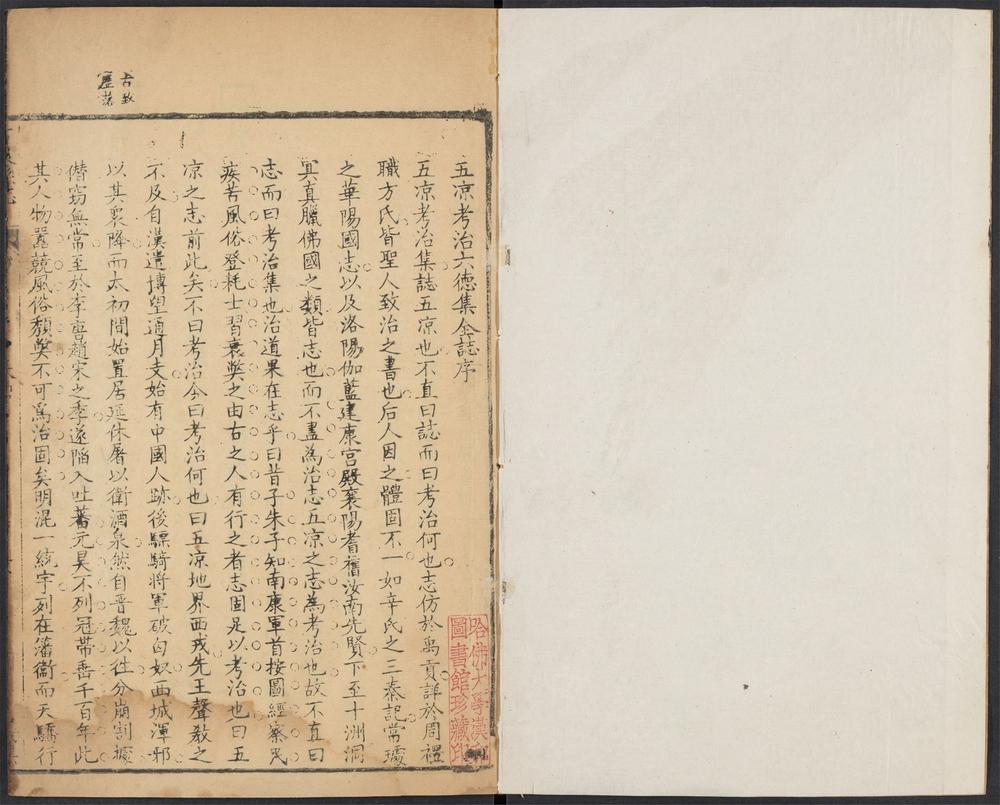 古致
歷落
五凉考治六德集全誌序
五凉考治集誌五凉也不直曰誌而曰考治何也志仿於禹貢詳於周禮
職方氏皆聖人致治之書也后人因之體固不一如辛氏之三秦記常璩
之華陽國志以及洛陽伽藍建康宫殿襄陽耆舊汝南先賢下至十洲洞
冥真臘佛國之類皆志也而不盡為治志五凉之志為考治也故不直曰
志而曰考治集也治道果在志乎曰昔子朱子知南康軍首按圖經察民
疾苦風俗登耗士習衰獘之由古之人有行之者志固足以考治也曰五
凉之志前此矣不曰考治今曰考治何也曰五凉地界西戎先王聲敎之
不及自漢遣博望通月支始有中國人跡後驃騎將軍破匈奴西城渾邪
以其衆降而太初間始置居延休屠以衛酒泉然自晋魏以往分崩割據
僭竊無常至於李唐趙宋之季遂陥入吐蕃元昊不列冠帶盖千百年此
其人物嚣競風俗頽獘不可為治固矣明混一統宇列在藩衞而天驕行
哈佛大學漢和
圖書館珍藏印